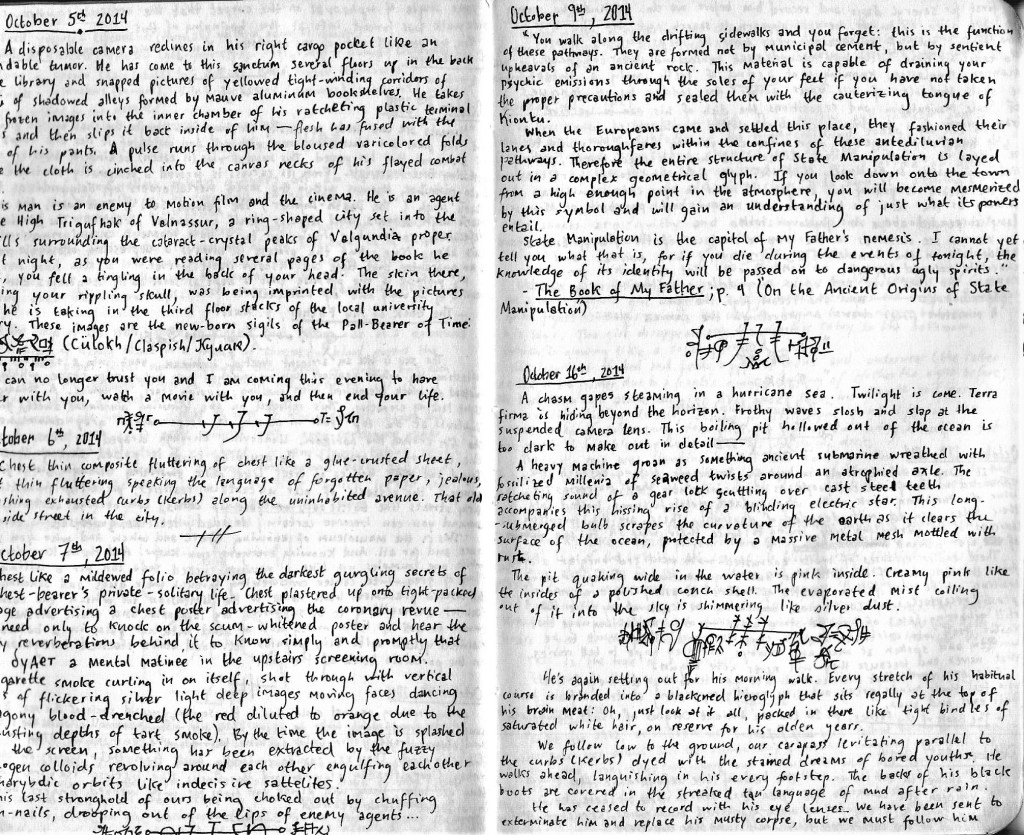 October 5th 2014
A disposable camera reclines in his right cargo pocket like an
dable tumor. He has come to this sanctum several floors up in the back
e library and snapped pictures of yellowed tight-winding corridors of
of shadowed alleys formed by mauve aluminum bookshelves. He takes
frozen images into the inner chamber of his ratcheting plastic terminal
s and then slips it back inside of him — flesh has fused with the
of his pants. A pulse runs through the bloused varicolored folds
e the cloth is cinched into the canvas necks of his flayed combat
is man is an enemy to motion film and the cinema. He is an agent
e High Trigufhak of Valnassur, a ring-shaped city set into the
lls surrounding the cataract-crystal peaks of Valgundia proper.
t night, as you were reading several pages of the book he
, you fell a tingling in the back of your head. The skin there,
ing your rippling skull, was being imprinted with the pictures
he is taking in the third floor stacks of the local university
ry. These images are the new-born sigils of the Pall-Bearer of Time:
(Ccülokh/Claspish/Kyuak).
can no longer trust you and I am coming this evening to have
r with you, wath a movie with you, and then end your life.
tober 6th, 2014
Chest thin composite fluttering of chest like a glue-crusted sheet,
t thin fluttering speeking the language of forgotten paper, jealous,
shing exhausted curbs (kerbs) along the uninhabited avenue. That old
side street in the city.
ctober 7th, 2014
hest like a mildewed folio betraying the darkest gurgling secrets of
hest-bearer's private-solitary life. Chest plastered up onto tight-packed
age advertising a chest poster advertising the coronary revue —
need only to knock on the scum-whitened poster and hear the
y reverberations behind it to know simply and promptly that
будет a mental matinee in the upstairs screening room.
garette smoke curling in on itself, shot through with vertical
s of flickering silver light deep images moving faces dancing
gony blood-drenched (the red diluted to orange due to the
usting depths of tart smoke). By the time the image is splashed
the screen, something has been extracted by the fuzzy
ogen colloids revolving around each other engulfing eachother
harybdic orbits like indecisive sattelites.
his last stronghold of ours being choked out by chuffing
n-nails, drooping out of the lips of enemy agents...
October 9th, 2014
"You walk along the drifting sidewalks and you forget: this is the function
of these pathways. They are formed not by municipal cement, but by sentient
upheavals of an ancient rock. This material is capable of draining your
psychic emissions through the soles of your feet if you have not taken
the proper precautions and sealed them with the cauterizing tongue of
Kiontu.
When the Europeans came and settled this place, they fashioned their
lanes and thoroughfares within the confines of these antediluvian
pathways. Therefore the entire structure of State Manipulation is layed
out in a complex geometrical glyph. If you look down onto the town
from a high enough point in the atmosphere, you will become mesmerized
by this symbol and will gain an understanding of just what its powers
entail.
State Manipulation is the capitol of my father's nemesis. I cannot yet
tell you what that is, for if you die during the events of tonight, the
knowledge of its identity will be passed on to dangerous ugly spirits."
- The Book of My Father; p. 9 (On the Ancient Origins of State
Manipulation)
October 16th, 2014
A chasm gapes steaming in a hurricane sea. Twilight is come. Terra
firma is hiding beyond the horizon. Frothy waves slosh and slap at the
suspended camera lens. This boiling pit hollowed out of the ocean is
too dark to make out in detail —
A heavy machine groan as something ancient submarine wreathed with
fossilized millenia of seaweed twists around an atrophied axle. The
ratcheting sound of a gear lock scuttling over cast steel teeth
accompanies this hissing rise of a blinding electric star. This long-
-submerged bulb scrapes the curvature of the earth as it clears the
surface of the ocean, protected by a massive metal mesh mottled with
rust.
The pit quaking wide in the water is pink inside. Creamy pink like
the insides of a polished conch shell. The evaporated mist coiling
out of it into the sky is shimmering like silver dust.
He's again setting out for his morning walk. Every stretch of his habitual
course is branded into a blackened hieroglyph that sits regally at the top of
his brain meat: Oh, just look at it all, packed in there like tight bindles of
saturated white hair, on reserve for his olden years.
We follow low to the ground, our carapass levitating parallel to
the curbs (kerbs) dyed with the stamed dreams of bored youths. He
walks ahead, languishing in his every footstep. The backs of his black
boots are covered in the streaked tan language of mud after rain.
He has ceased to record with his eye lenses. We have been sent to
exterminate him and replace his musty corpse, but we must follow him